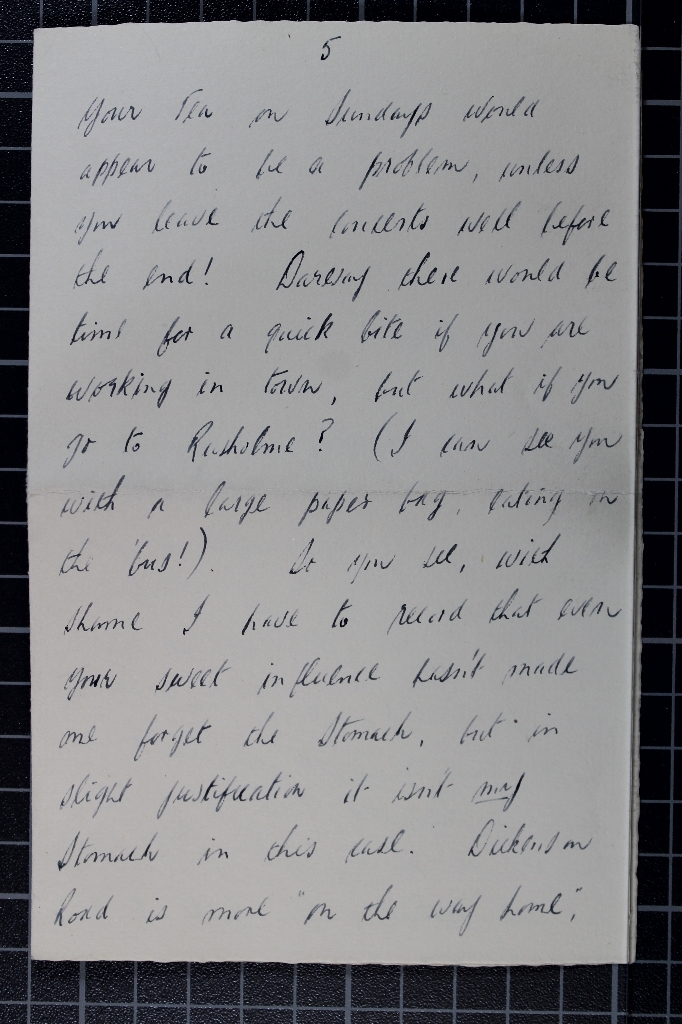 5
Your Tea on Sundays would
appear to be a problem, unless
you leave the concerts well before
the end! Daresay there would be
time for a quick bite if you are
working in town, but what if you
go to Rusholme? (I can see you
with a large paper bag, eating on
the 'bus!). So you see, with
shame I have to record that even
your sweet influence hasn't made
me forget the Stomach, but in
slight justification it isn't my
Stomach in this case. Dickenson
Road is more "on the way home",